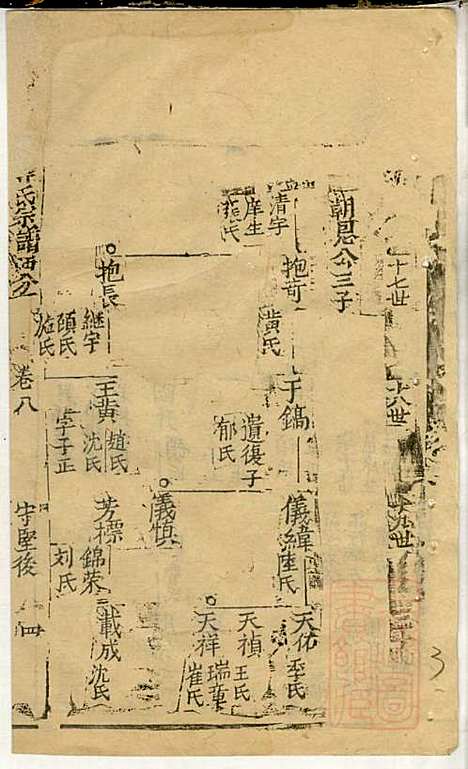 十七世
十八世
十九世
朝恩公三子
清宇
庠生
張氏
抱奇
黃氏
于鎬
遺復子
郁氏
儀緯
天佑
季氏
天禎
王氏
天祥
瑞
崔氏
儀慎
抱長
繼宇
顧氏
施氏
王黄
趙氏
沈氏
字子正
芳標
錦荣
刘氏
載成
沈氏
氏宗譜
卷八
守堅後
四
3